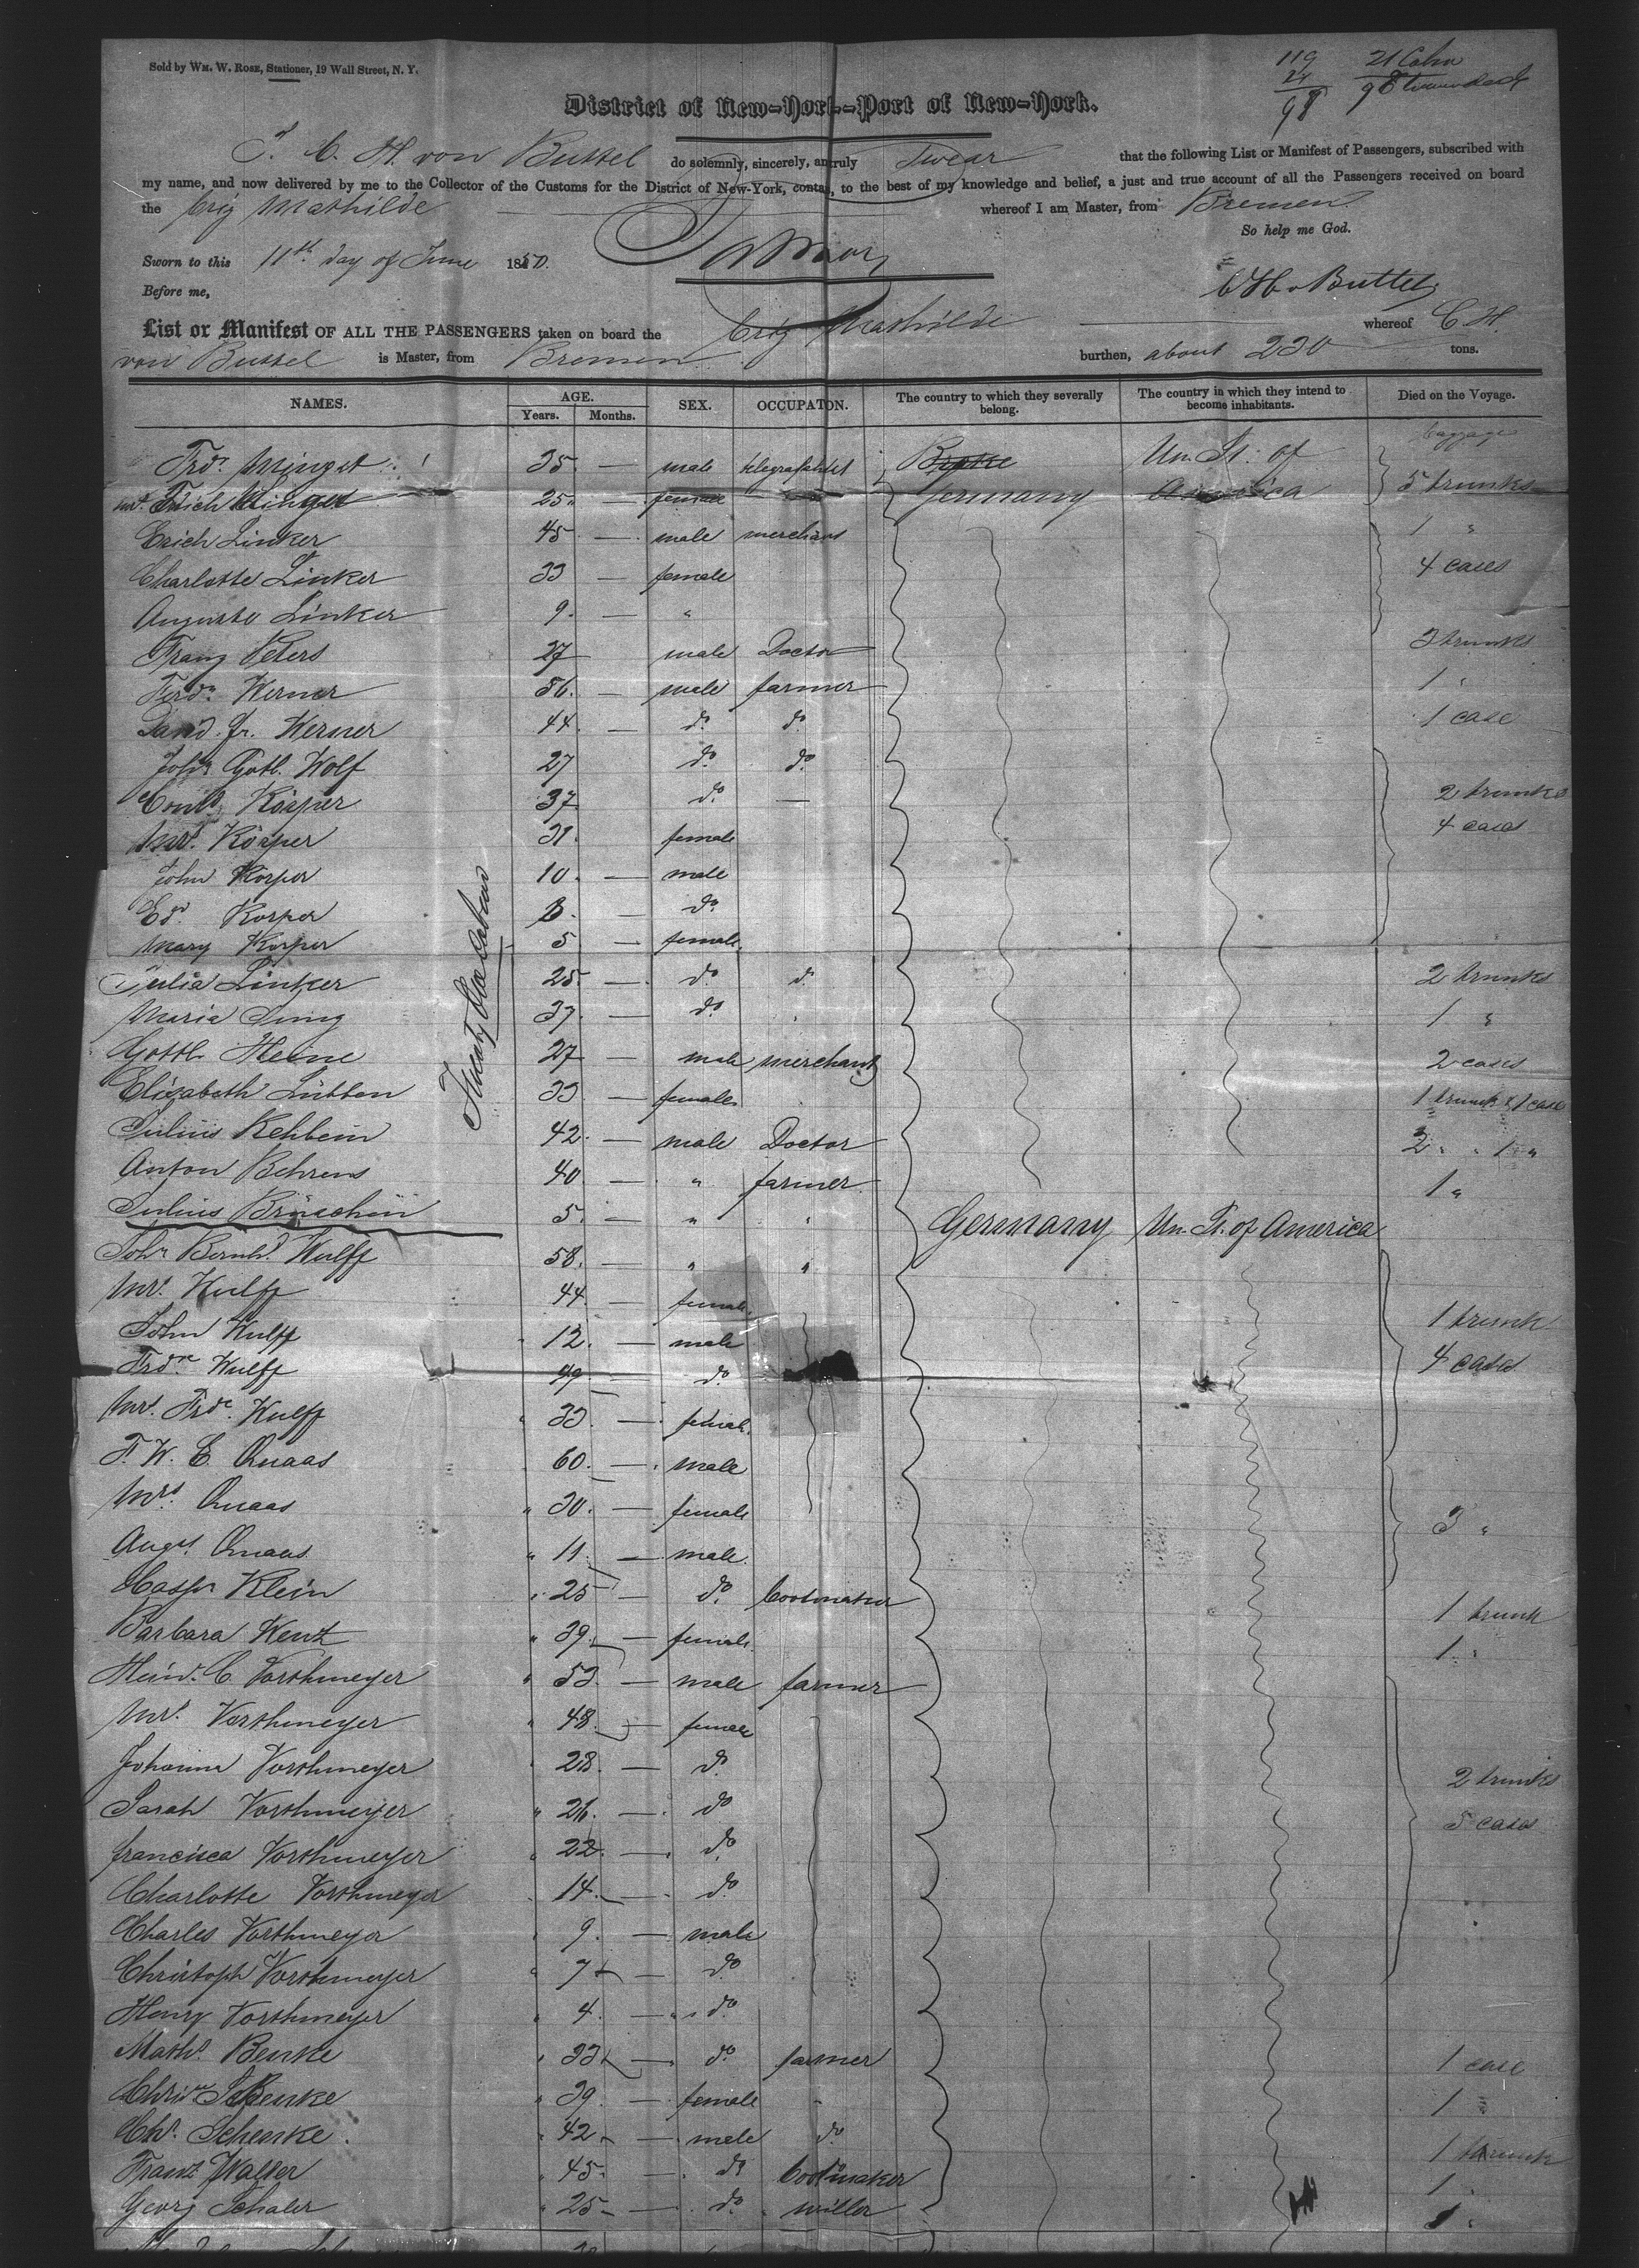 Sold by WM. W. ROSE, Stationer, 19 Wall Street, N. Y.
119 21 Cabin
21 98
98
District of New-York--Port of New-York.
I, C. H. von Buttel do solemnly, sincerely, and truly swear that the following List or Manifest of Passengers, subscribed with
my name, and now delivered by me to the Collector of the Customs for the District of New-York, contains, to the best of my knowledge and belief, a just and true account of all the Passengers received on board
the brig Mathilde whereof I am Master, from Bremen.
So help me God.
Sworn to this 11th day of June 1850.
Before me,
CHv Buttel
List or Manifest OF ALL THE PASSENGERS taken on board the brig Mathilde whereof C. H.
von Buttel is Master, from Bremen burthen, about 230 tons.
NAMES. AGE. SEX. OCCUPATON. The country to which they severally belong. The country in which they intend to become inhabitants. Died on the Voyage.
Years. Months.
baggage
Frdr. 35 — male Un. St. of
25 female Germany America 5 trunks
Erich Linker 45 — male merchant 1 "
Charlotte Linker 33 — female 4 cases
Auguste Linker 9. — "
Franz Peters 27 male Doctor 3 trunks
Ferdn. Werner 56. — male farmer 1 "
Fr. Werner 44. — do. do. 1 case
Johs Gotl. Wolf 27 do. do.
Conrd. Körper 37 do. — 2 trunks
Mrs. Körper 31. female 4 cases
John Korper 10. — male
Ed. Korper — do.
Mary Korper 5. — female.
Julia Linker 25. — do. d. 2 trunks
Maria 37. — do. 1 "
Gottl. Heine 27 — male merchant 2 cases
Elisabeth Lübben 33 — female 1 trunk & 1 case
Julius Rehbein 42. — male Doctor 2 " " 1 "
Anton Behrens 40 — " farmer 1 "
Julius 5. — " " Germany Un. St. of America
Twenty One Cabin
John Bernhd. Wulff 58. — " "
Mrs. Wulff 44. — female.
John Wulff 12. — male 1 trunk
Frdr. Wulff 49 — do. 4 cases
Mrs. Frdr. Wulff " 33. — female.
F. W. E. Quaas 60. — male
Mrs. Quaas " 30. — female 3 "
Augst. Quaas " 11. — male.
Caspr Klein " 25 — do. bootmaker 1 trunk
Barbara Wentz " 39. — female. 1 "
Heinr. C. Vorthmeyer " 53. — male farmer
Mrs. Vorthmeyer " 48. — female
Johanna Vorthmeyer " 28. — do. 2 trunks
Sarah Vorthmeyer " 26. — do 5 cases
francisca Vorthmeyer " 22. — do.
Charlotte Vorthmeyer 14. — do.
Charles Vorthmeyer " 9. — male
Christoph Vorthmeyer " 7 — do.
Henry Vorthmeyer " 4. — do.
Maths. Benke " 33 — do. farmer 1 case
" 39. — female 1 "
Chr. Schenke. " 42. — male do.
Franz Walter " 45. — do bootmaker 1 trunk
Georg Schaler " 25 — do. miller 1 "